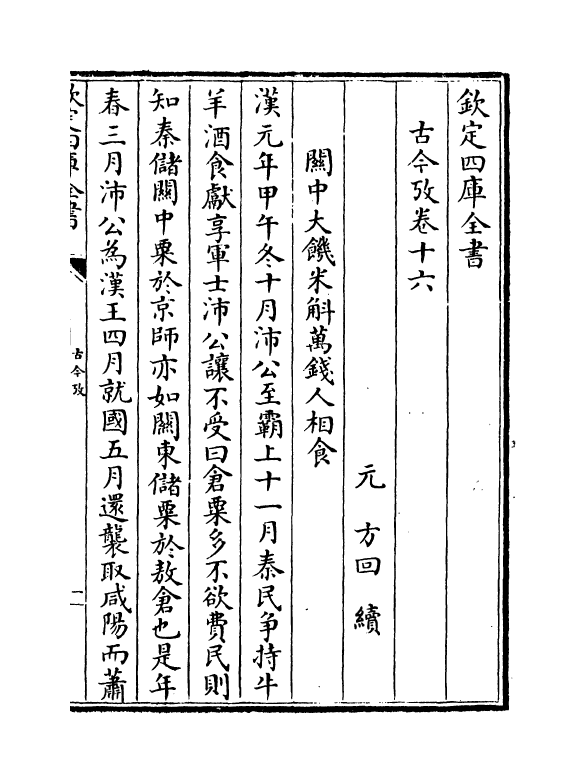 欽定四庫全書
古今攷卷十六
元 方回 續
關中大饑米斛萬錢人相食
漢元年甲午冬十月沛公至霸上十一月秦民争持牛
羊酒食獻享軍士沛公讓不受曰倉粟多不欲費民則
知秦儲關中粟於京師亦如關東儲粟於敖倉也是年
春三月沛公為漢王四月就國五月還襲取咸陽而蕭
欽定四庫全書
古今攷